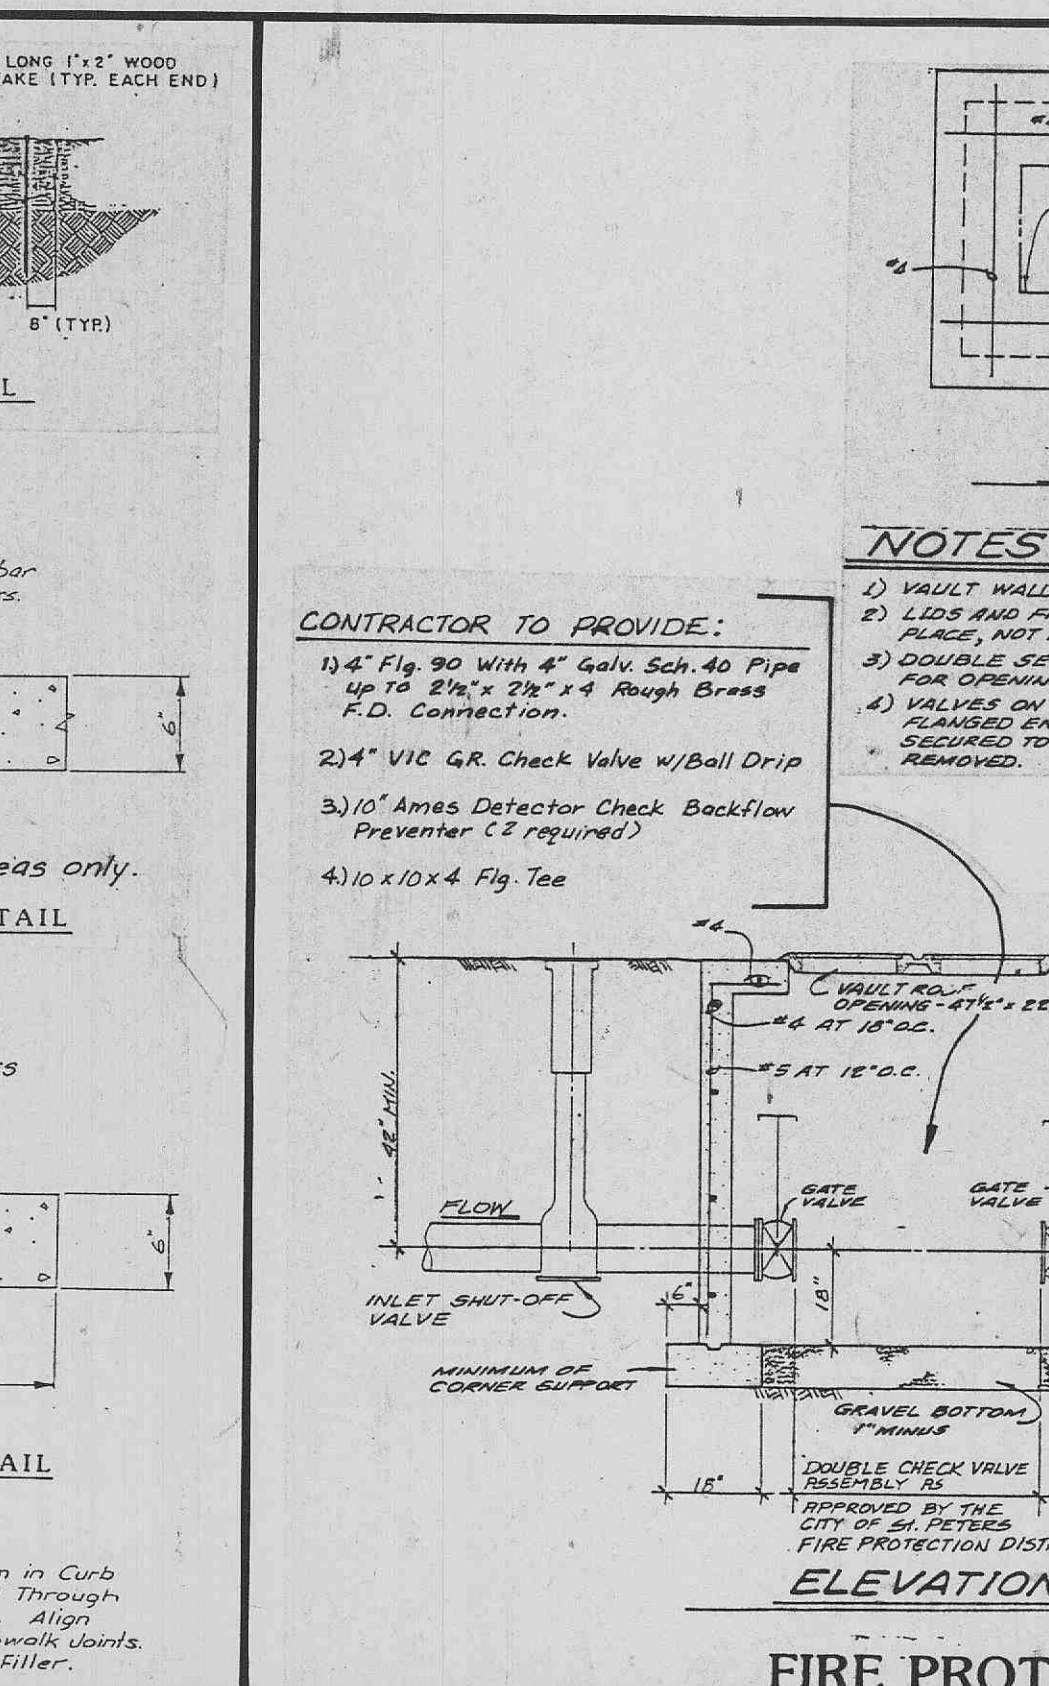 LONG 1"x2" WOOD
AKE (TYP. EACH END)
8" (TYP.)
L
bar
rs.
6"
eas only.
TAIL
s
6"
AIL
n in Curb
Through
Align
walk Joints.
Filler.
#4
NOTES
1) VAULT WALL
2) LIDS AND F
PLACE, NOT
3) DOUBLE SE
FOR OPENIN
4) VALVES ON
FLANGED EN
SECURED TO
REMOVED.
CONTRACTOR TO PROVIDE:
1.) 4" Flg. 90 With 4" Galv. Sch. 40 Pipe
up To 2½" x 2½" x 4 Rough Brass
F.D. Connection.
2.) 4" VIC GR. Check Valve w/Ball Drip
3.) 10" Ames Detector Check Backflow
Preventer (2 required)
4.) 10 x 10 x 4 Flg. Tee
#4
VAULT ROOF
OPENING - 47½" x 22
#4 AT 18" O.C.
#5 AT 12" O.C.
42" MIN.
FLOW
GATE
VALVE
GATE
VALVE
INLET SHUT-OFF
VALVE
6"
18"
MINIMUM OF
CORNER SUPPORT
GRAVEL BOTTOM
1" MINUS
18"
DOUBLE CHECK VALVE
ASSEMBLY AS
APPROVED BY THE
CITY OF St. PETERS
FIRE PROTECTION DIST
ELEVATION
FIRE PROT